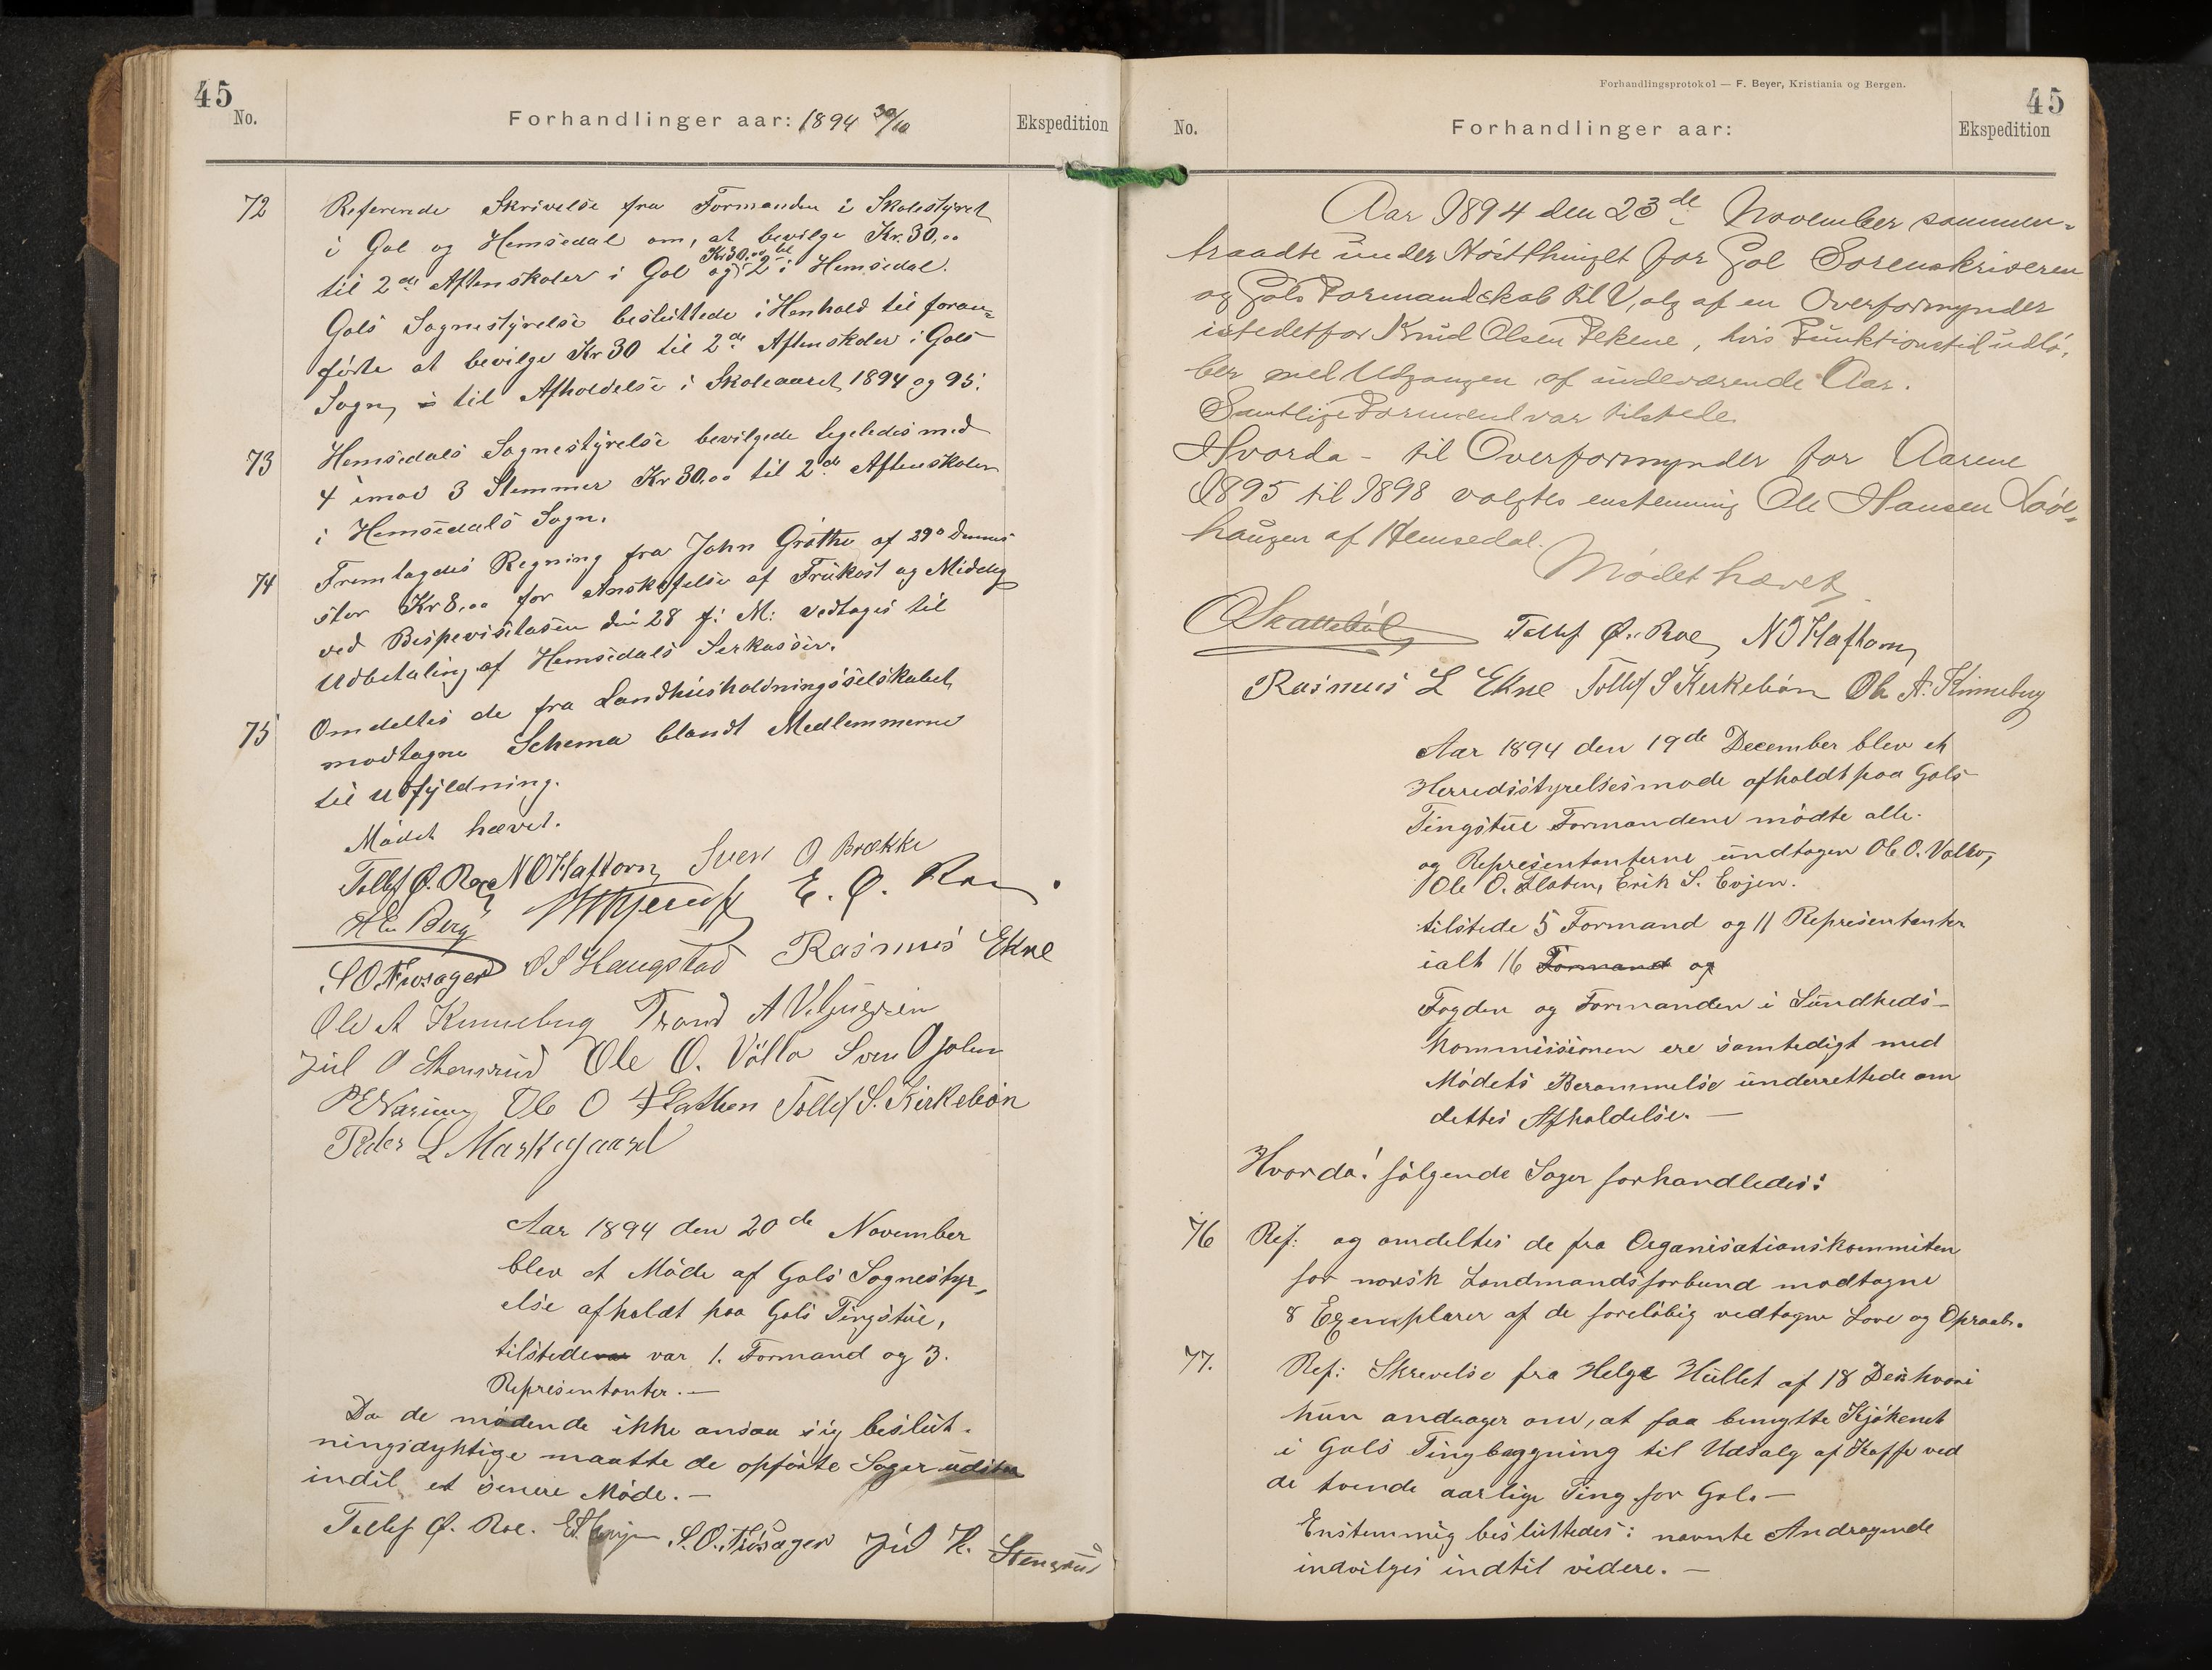 45
No.
Forhandlinger aar: 1894 30/10
Ekspedition
72 Referende Skrivelse fra Formanden i Skolestyret
i Gol og Hemsedal om, at bevilge Kr. 30,00
til 2de Aftenskoler i Gol og Kr 30.00 til 2 i Hemsedal.
Gols Sognestyrelse besluttede i Henhold til foran-
förte at bevilge Kr 30 til 2de Aftenskoler i Gols
Sogn, til Afholdelse i Skoleaaret 1894 og 95.
73 Hemsedals Sognestyrelse bevilgede ligeledes med
4 imod 3 Stemmer Kr 30,00 til 2de Aftenskoler
i Hemsedals Sogn.
74 Fremlagdes Regning fra John Gröthe af 29de dennes
stor Kr 8,00 for Anskaffelse af Frükost og Middag
ved Bispevisitasen den 28 f. M: vedtoges til
Udbetaling af Hemsedals Herkasser.
75 Omdeltes de fra Landhüsholdningsselskabet
modtagne Schema blandt Medlemmerne
til Udfyldning.
Mödet hævet.
Tollef Ø. Roe N O Haftorn Sven O Brække
H E Berg E. Ø. Roe
S O Frösager O S Haugstad Rasmus Ekne
Ole A Kinneberg Trond A Viljugrein
Jul O Stensrud Ole O. Völlo Sven O Golin
Ole O Flathen Tollef S. Kirkebön
Peder L Markegaard
Aar 1894 den 20de November
blev et Möde af Gols Sognestyr-
else afholdt paa Gols Tingstüe,
tilstede var 1. Formand og 3.
Representanter. —
Da de mödende ikke ansaa sig beslut-
ningsdyktige maatte de opförte Sager udstaa
indtil et senere Möde. —
Tollef Ø. Roe. E S Evjen S. O. Frösager Jul K. Stensrud
Forhandlingsprotokol — F. Beyer, Kristiania og Bergen.
45
No.
Forhandlinger aar:
Ekspedition
Aar 1894 den 23de November sammen-
traadte ünder Höstthinget for Gol Sorenskriveren
og Gols Formandskab til Valg af en Overformynder
istedetfor Knud Olsen Ekene, hvis Fünktionstid udlö-
ber med Udgangen af indeværende Aar.
Samtlige Formænd var tilstede.
Hvorda - til Overformynder for Aarene
1895 til 1898 valgtes enstemmig Ole Hansen Löve-
haugen af Hemsedal.
Mödet hævet
Skattebøl Tollef Ø. Roe N O Haftorn
Rasmus L Ekne Tollef S Kirkebön Ole A. Kinneberg
Aar 1894 den 19de December blev et
Herredsstyrelsesmöde afholdt paa Gols
Tingstüe Formandene mödte alle.
og Representanterne undtagen Ole O. Völlo,
Ole O. Flaten, Erik S. Evjen.
tilstede 5 Formænd og 11 Representanter
ialt 16 Formand og
Fogden og Formanden i Sündheds-
kommissionen ere samtedigt med
Mödets Berammelse ünderrettede om
dettes Afholdelse. —
Hvorda! følgende Sager forhandledes:
76 Ref: og omdeltes de fra Organisationskommiten
for norsk Landmandsforbund modtagne
8 Exemplarer af de forelöbig vedtagne Love og Opraab.
77. Ref: Skrevelse fra Helge Hüllet af 18 Des hvori
hün andrager om, at faa benytte Kjökenet
i Gols Tingbygning til Udsalg af Kaffe ved
de tvende aarlige Ting for Gol. —
Enstemmig besluttedes: nevnte Andragende
indvilges indtil videre. —